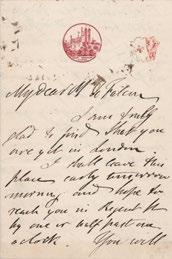 My dear
I am truly
glad to find that you
are yet in London
I shall leave this
place early tomorrow
morning and hope to
reach you in Regent St
by one or half past one
o'clock. You will